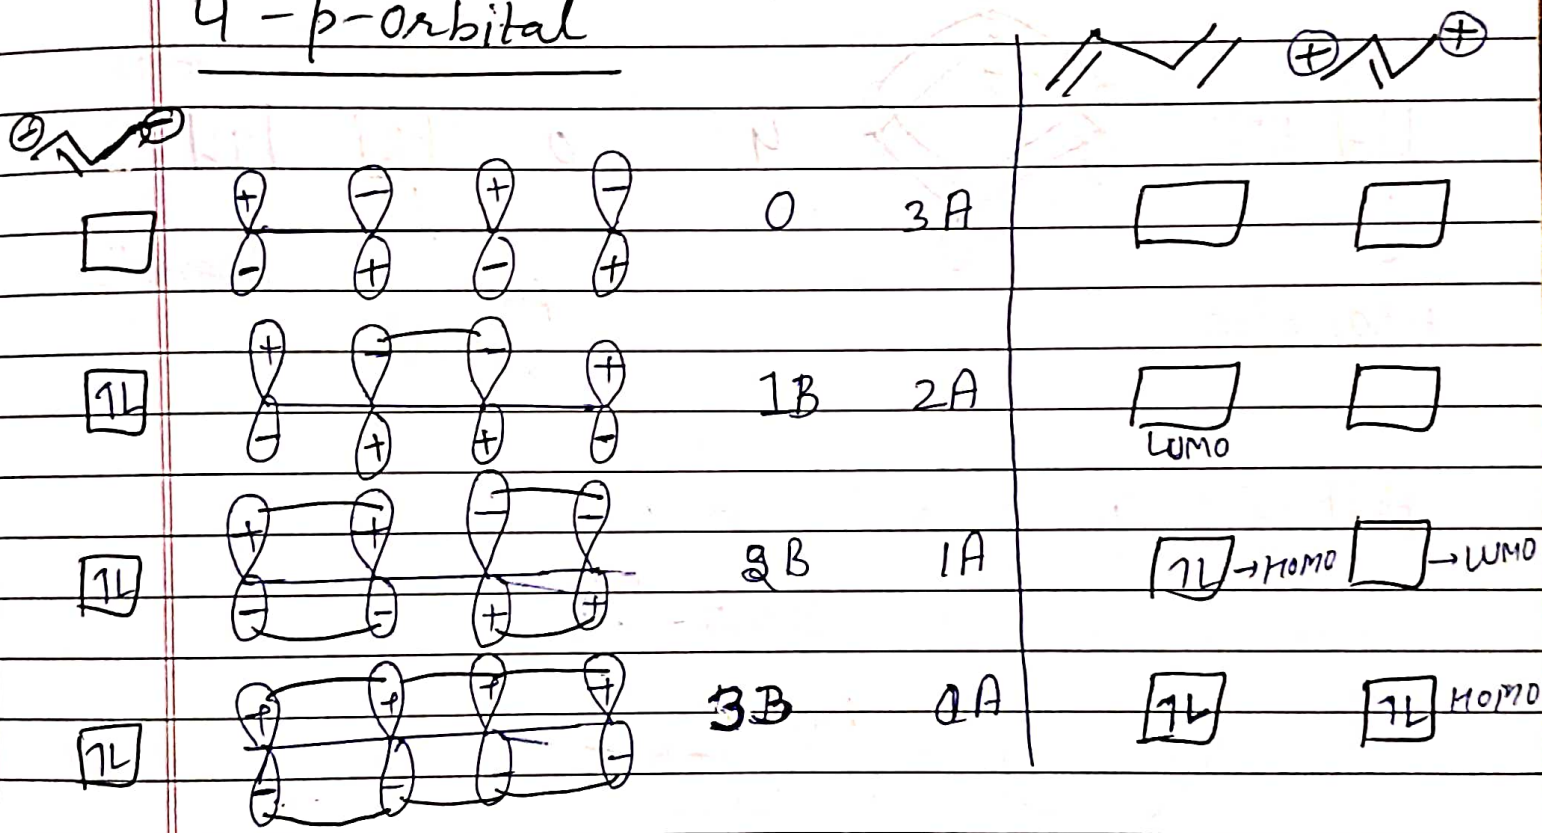 4 - p-orbital
⊕ ⊕
⊖ ⊖
+ - + -
0 3A
- + - +
+ - - +
1L 1B 2A
- + + -
LUMO
+ + - -
1L 2B 1A 1L → HOMO → LUMO
- - + +
+ + + +
3B 0A 1L 1L HOMO
1L
- - - -